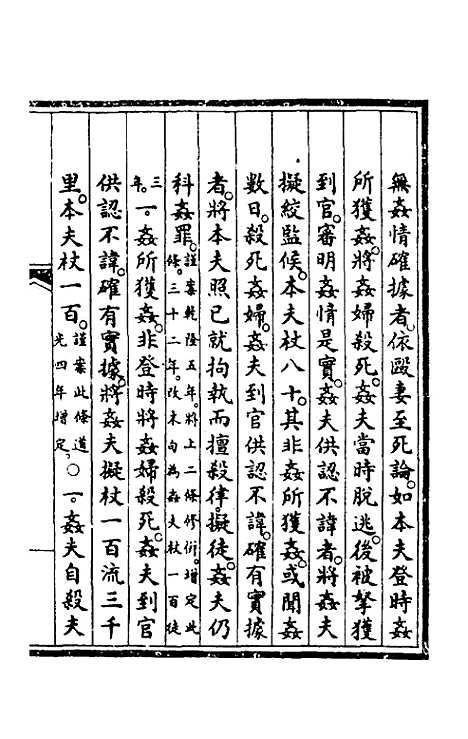 無姦情確據者。依毆妻至死論。如本夫登時姦
所獲姦。將姦婦殺死。姦夫當時脫逃。後被拏獲
到官。審明姦情是實。姦夫供認不諱者。將姦夫
擬絞監候。本夫杖八十。其非姦所獲姦。或聞姦
數日。殺死姦婦。姦夫到官供認不諱。確有實據
者。將本夫照已就拘執而擅殺律。擬徒。姦夫仍
科姦罪。謹案乾隆五年。將上二條修併。增定此條。三十二年。改末句為姦夫杖一百徒
三年。一。姦所獲姦。非登時將姦婦殺死。姦夫到官
供認不諱。確有實據。將姦夫擬杖一百流三千
里。本夫杖一百。謹案此條道光四年增定。○一。姦夫自殺夫